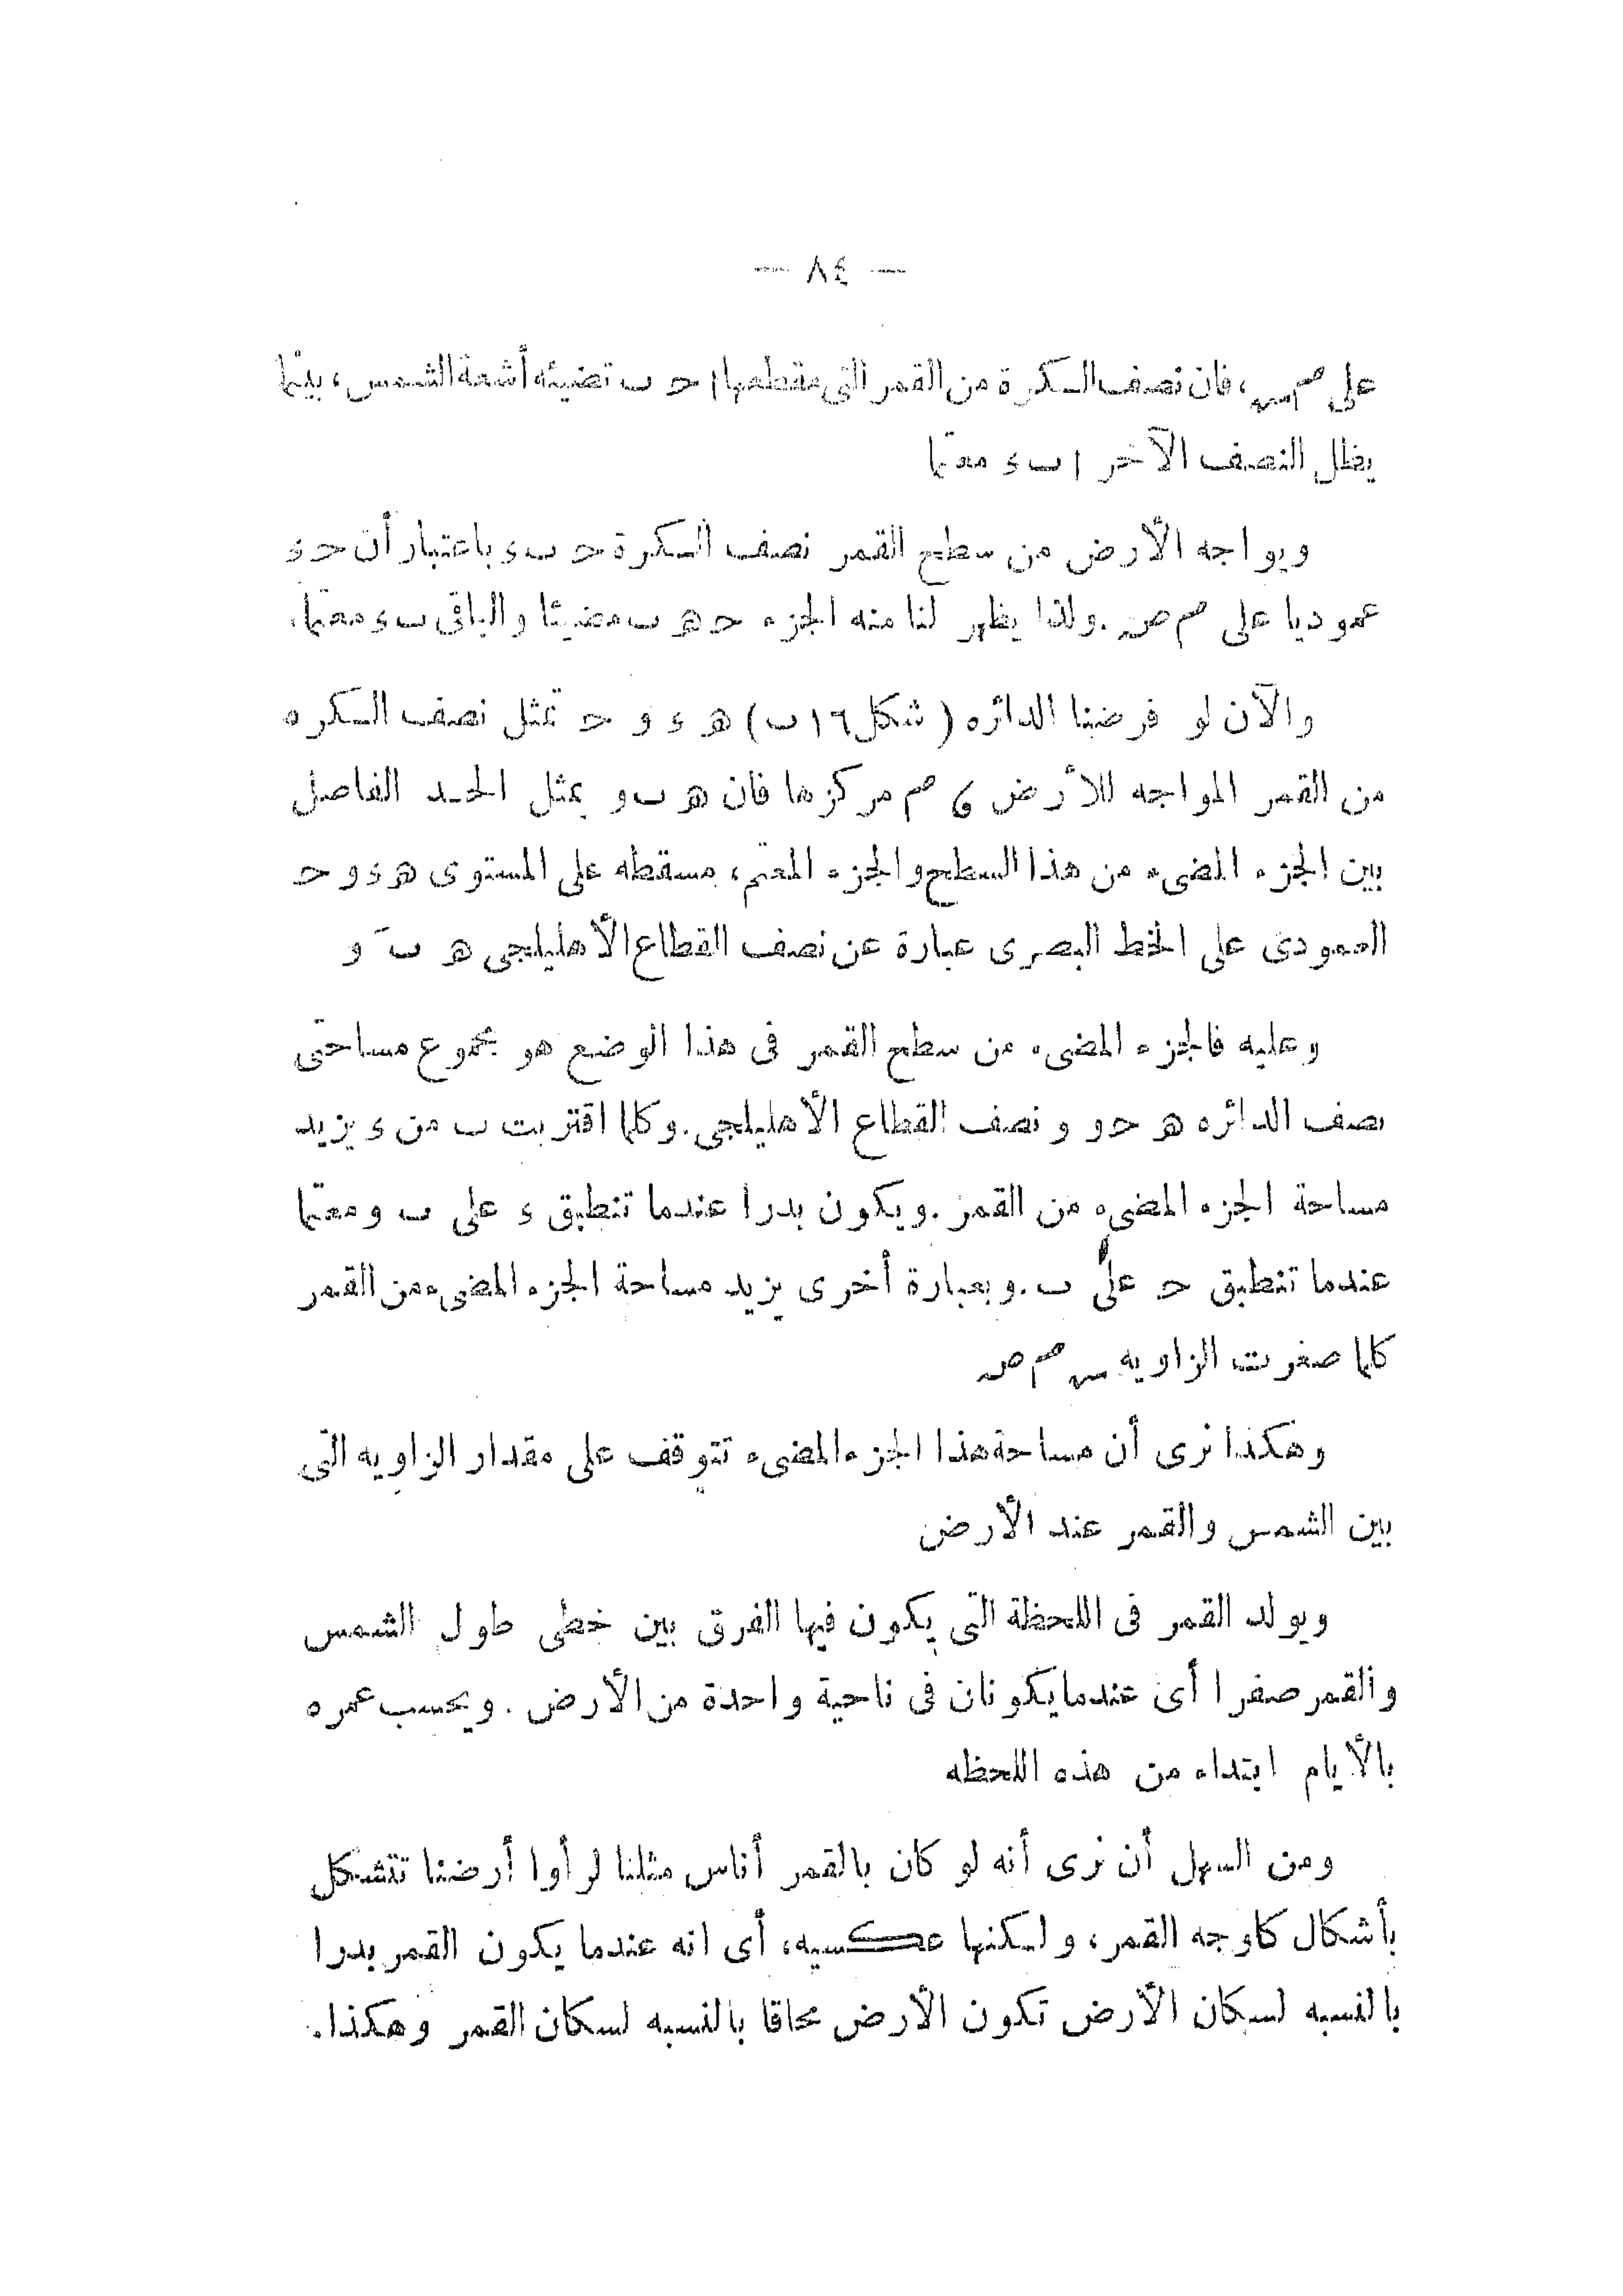 — ٨٤ —
على م س، فان نصف الكرة من القمر التى مقطعها ا ح ب تضيئه أشعة الشمس، بينما
يظل النصف الآخر ا ب ء معتما
ويواجه الأرض من سطح القمر نصف الكرة ح ب ء باعتبار أن ح ء
عموديا على م ص. ولذا يظهر لنا منه الجزء ح ه ب مضيئا والباقى ب ء معتما.
والآن لو فرضنا الدائره (شكل ١٦ ب) ه ء و ح تمثل نصف الكره
من القمر المواجه للأرض ، م مركزها فان ه ب و يمثل الحد الفاصل
بين الجزء المضىء من هذا السطح والجزء المعتم، مسقطه على المستوى ه ء و ح
العمودى على الخط البصرى عبارة عن نصف القطاع الأهليلجى ه بَ و
وعليه فالجزء المضىء من سطح القمر فى هذا الوضع هو مجموع مساحتى
نصف الدائره ه ح و و نصف القطاع الأهليلجى. وكلما اقتربت ب من ء يزيد
مساحة الجزء المضىء من القمر. ويكون بدرا عندما تنطبق ء على ب ومعتما
عندما تنطبق ح على ب. وبعبارة أخرى يزيد مساحة الجزء المضىء من القمر
كلما صغرت الزاويه س م ص
وهكذا نرى أن مساحة هذا الجزء المضىء تتوقف على مقدار الزاويه التى
بين الشمس والقمر عند الأرض
ويولد القمر فى اللحظة التى يكون فيها الفرق بين خطى طول الشمس
والقمر صفرا أى عندما يكونان فى ناحية واحدة من الأرض. ويحسب عمره
بالأيام ابتداء من هذه اللحظه
ومن السهل أن نرى أنه لو كان بالقمر أناس مثلنا لرأوا أرضنا تتشكل
بأشكال كاوجه القمر، ولكنها عكسيه، أى انه عندما يكون القمر بدرا
بالنسبه لسكان الأرض تكون الأرض محاقا بالنسبه لسكان القمر وهكذا.